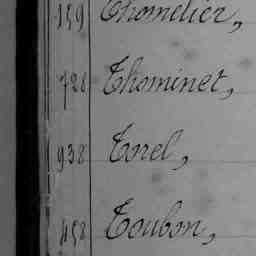 159 Thomelier,
728 Thominet,
938 Torel,
458 Toubon,